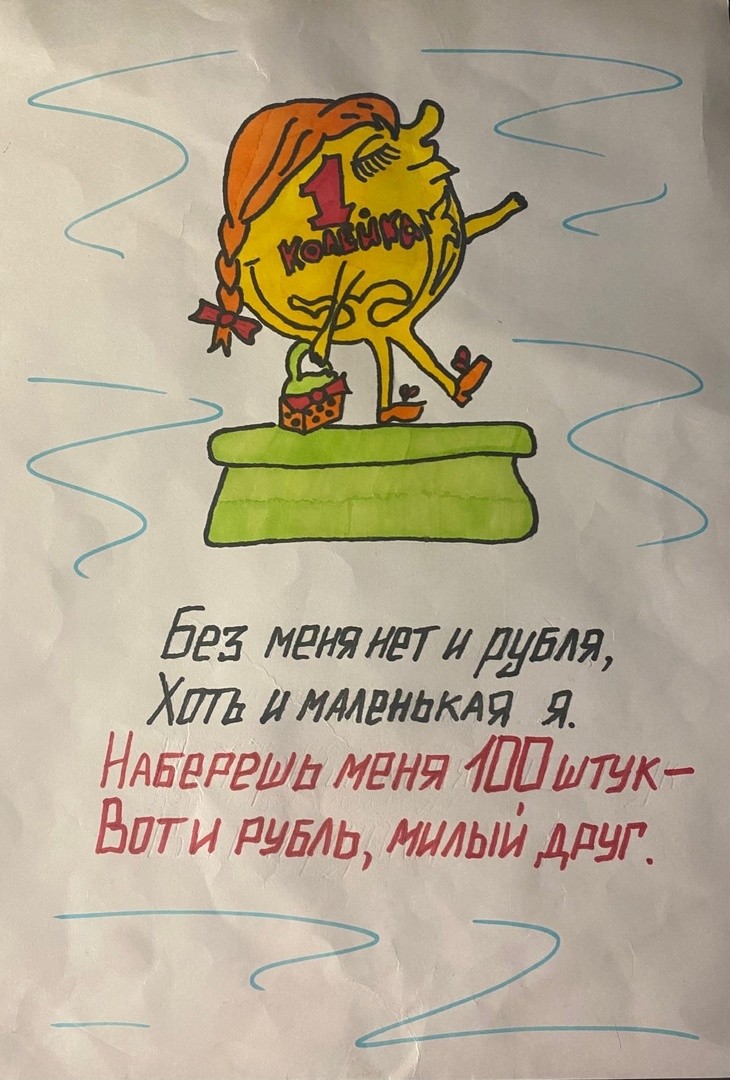 1
КОПЕЙКА
Без меня нет и рубля,
Хоть и маленькая я.
Наберешь меня 100 штук—
Вот и рубль, милый друг.